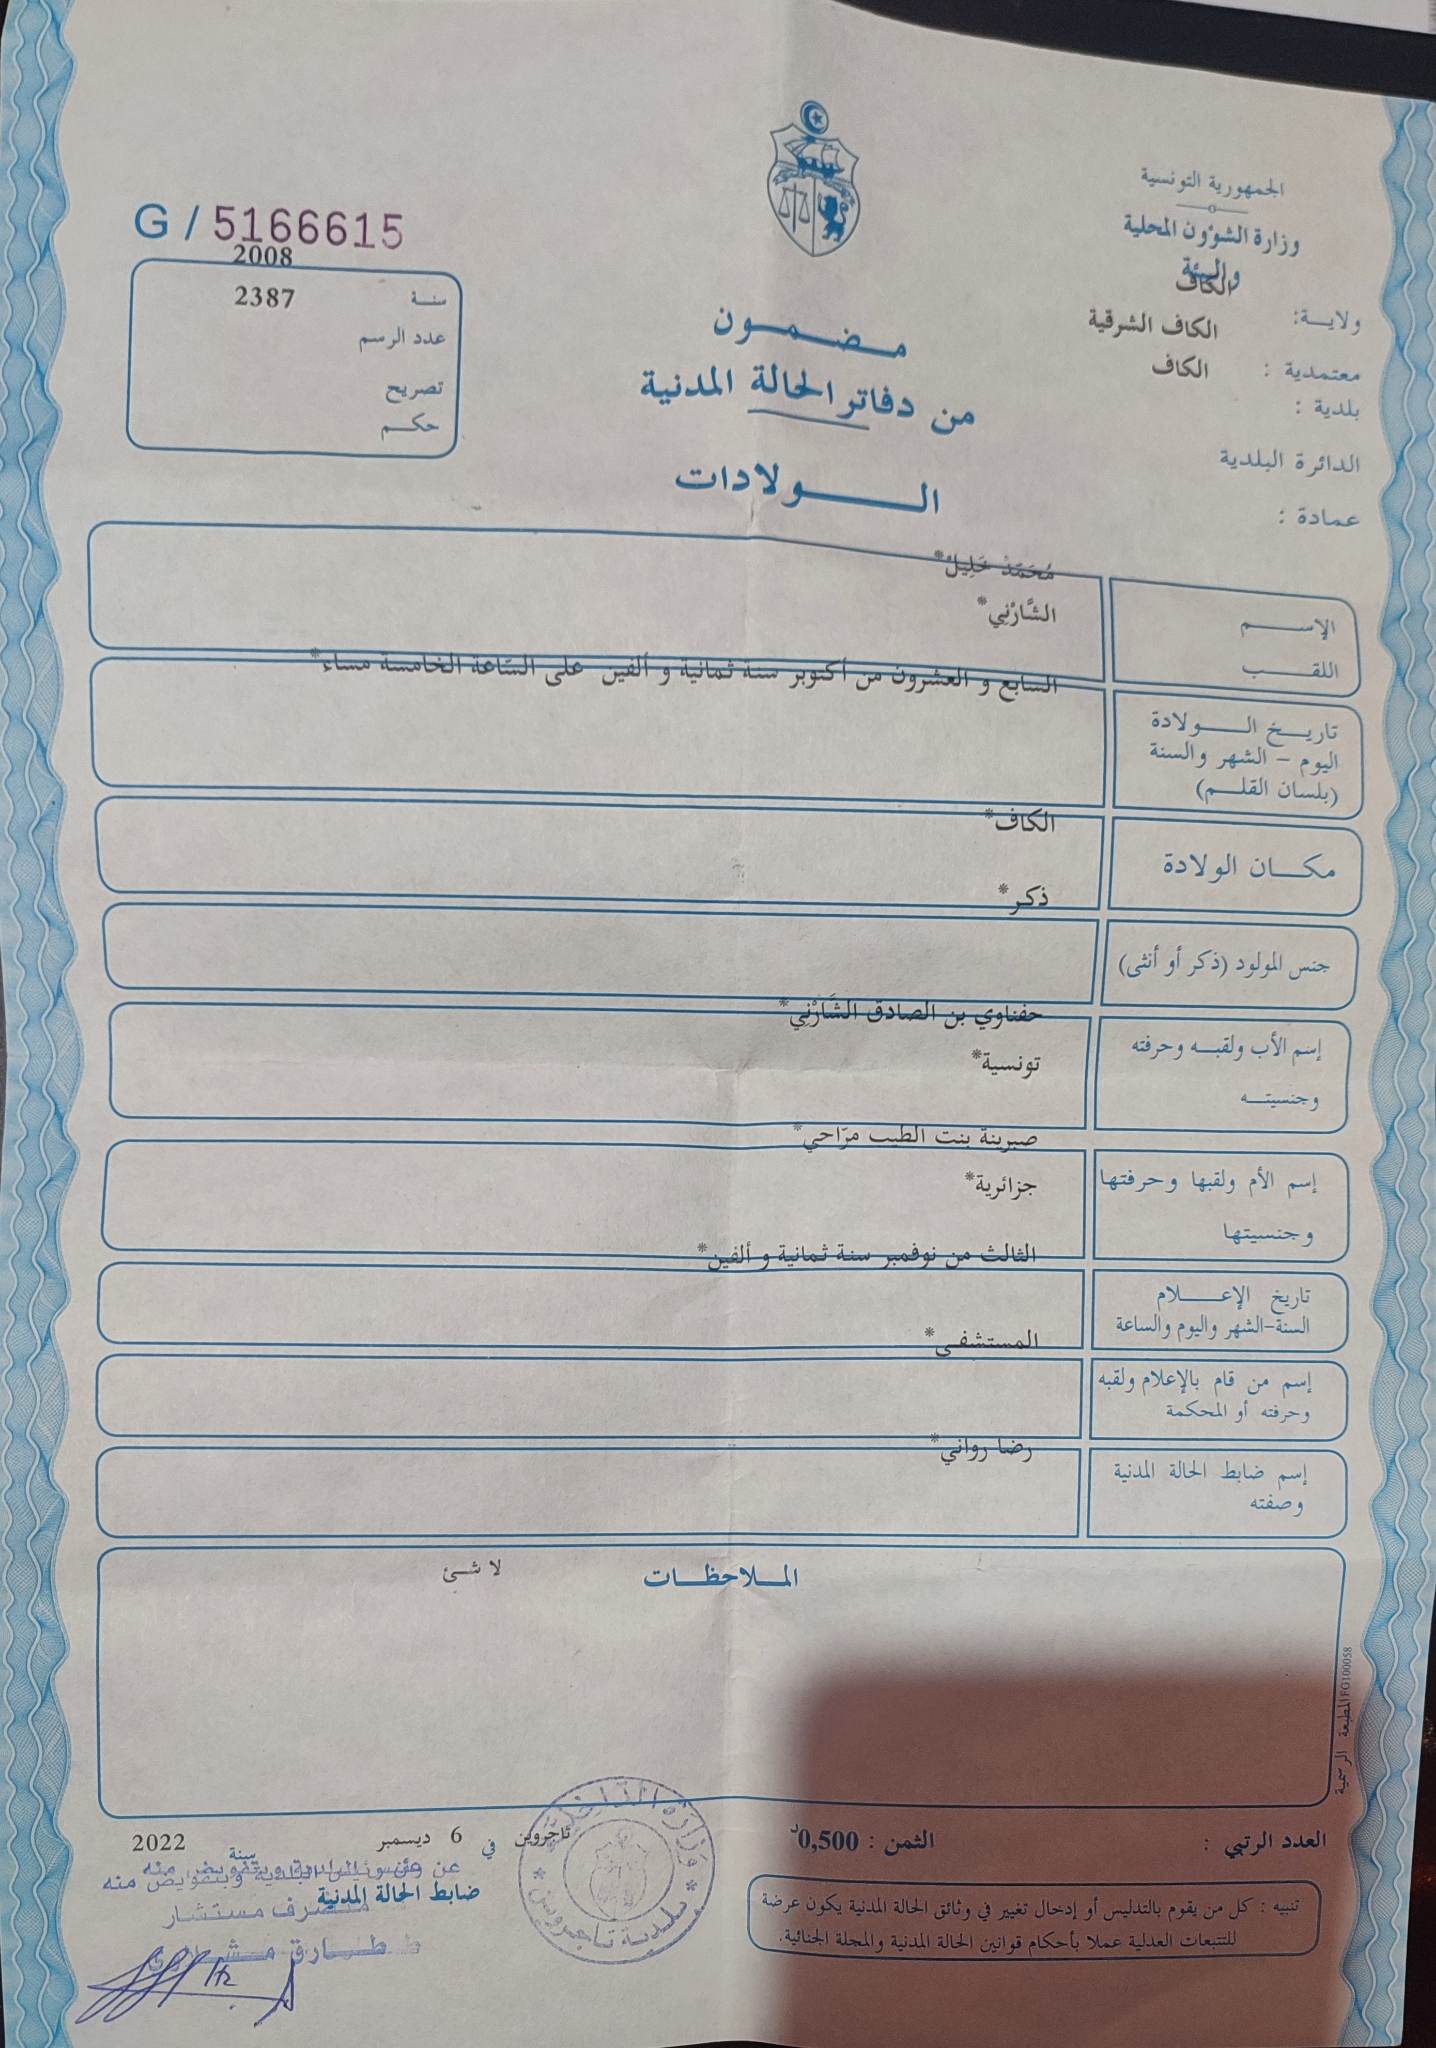 الجمهورية التونسية
وزارة الشؤون المحلية
والبيئة
ولايــة: الكاف
معتمدية : الكاف الشرقية
بلدية : الكاف
الدائرة البلدية
عمادة :
G / 5166615
2008
سنــة 2387
عدد الرسم
تصريح
حكــم
مــضــمــون
من دفاتر الحالة المدنية
الـــولادات
الإســـم مُحَمَّدْ خَلِيلْ*
اللقــب الشَّارْنِي*
تاريــخ الـــولادة
اليوم - الشهر والسنة
(بلسان القلــم)
السابع و العشرون من أكتوبر سنة ثمانية و ألفين على السّاعة الخامسة مساء*
مكـــان الولادة الكاف*
جنس المولود (ذكر أو أنثى) ذكر*
إسم الأب ولقبــه وحرفته حفناوي بن الصادق الشَّارْنِي*
وجنسيتــه تونسية*
إسم الأم ولقبها وحرفتها صبرينة بنت الطيب مرّاحي*
وجنسيتها جزائرية*
تاريخ الإعـــلام الثالث من نوفمبر سنة ثمانية و ألفين*
السنة-الشهر واليوم والساعة
إسم من قام بالإعلام ولقبه المستشفى*
وحرفته أو المحكمة
إسم ضابط الحالة المدنية رضا رواني*
وصفته
المــلاحظــات لا شئ
المطبعة الرسمية FG100058
العدد الرتبي :
الثمن : 0,500د
تاجروين في 6 ديسمبر سنة 2022
ضابط الحالة المدنية
متصرف مستشار
طــارق
وزارة الدّاخلية
بلدية تاجروين
تنبيه : كل من يقوم بالتدليس أو إدخال تغيير في وثائق الحالة المدنية يكون عرضة
للتتبعات العدلية عملا بأحكام قوانين الحالة المدنية والمجلة الجنائية.